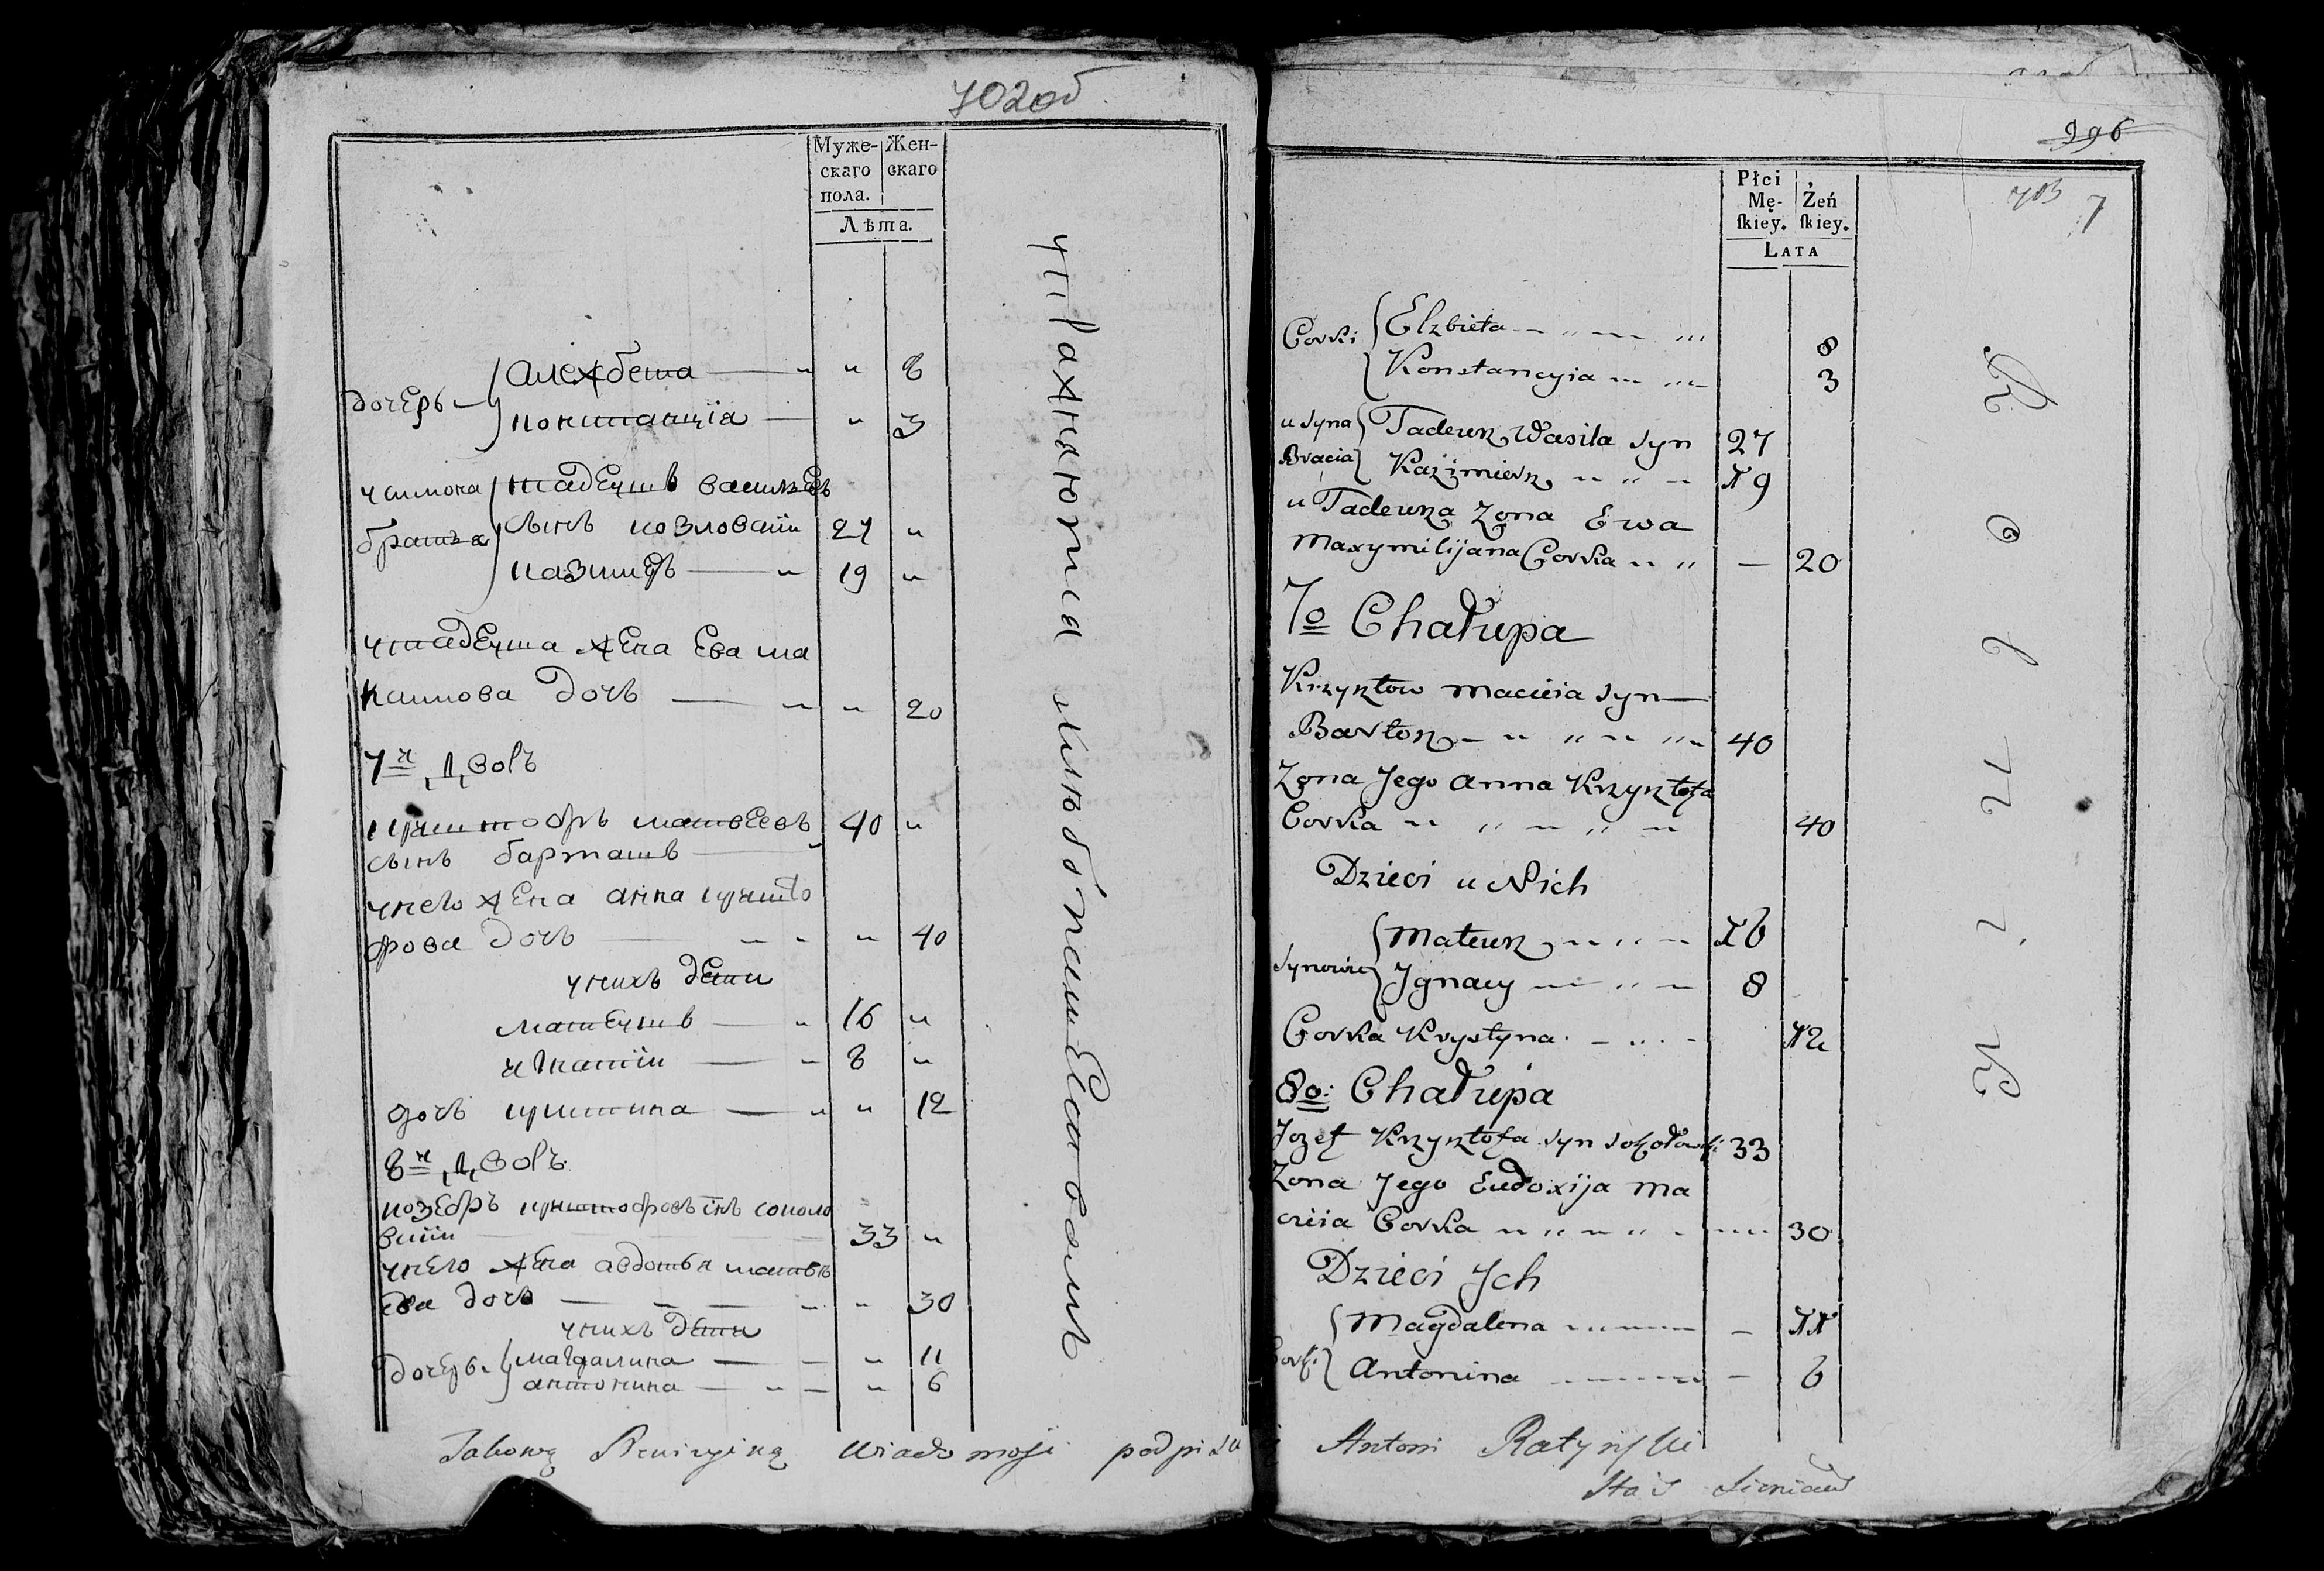 702об
Муже-
скаго
пола.
Жен-
скаго
Лѣта.
дочерь
Алежбета " 8
констанция " 3
тадеушъ
братья
сынъ козловский 27 "
казимеръ 19 "
утадеуша жена Ева ма
кимова дочь " 20
7й дворъ
криштофръ матвеевъ 40 "
сынъ барташъ
унего жена анна кришто
фрова дочь " 40
унихъ дети
матеушъ 16 "
игнатий 8 "
дочь криштина " 12
8й дворъ
иозефръ криштофровъ снъ соколо
вский 33 "
унего жена авдотья матвѣ
ева дочь " 30
унихъ дети
дочерь
магдалина " 11
антонина " 6
wiadomość podpisu
996
703
7
Płci
Mę-
ſkiey.
Żeń
ſkiey.
LATA
Corki
Elzbieta 8
Konstancyia 3
u syna
Bracia
Tadeusz Wasila syn 27
Kaźimierz 19
u Tadeusza Zona Ewa
Maxymilijana Corka — 20
7o Chałupa
Krzysztow Macieia syn
Bartosz 40
Zona Jego Anna Krzysztofa
Corka 40
Dzieci u Nich
Synowie
Mateusz 16
Ignacy 8
Corka Krystyna 12
8o: Chałupa
Jozef Krzysztofa syn Sokołowski 33
Zona Jego Eudoxija Ma
cieia Corka 30
Dzieci Ich
Corki
Magdalena — 11
Antonina — 6
Antoni Ratyński